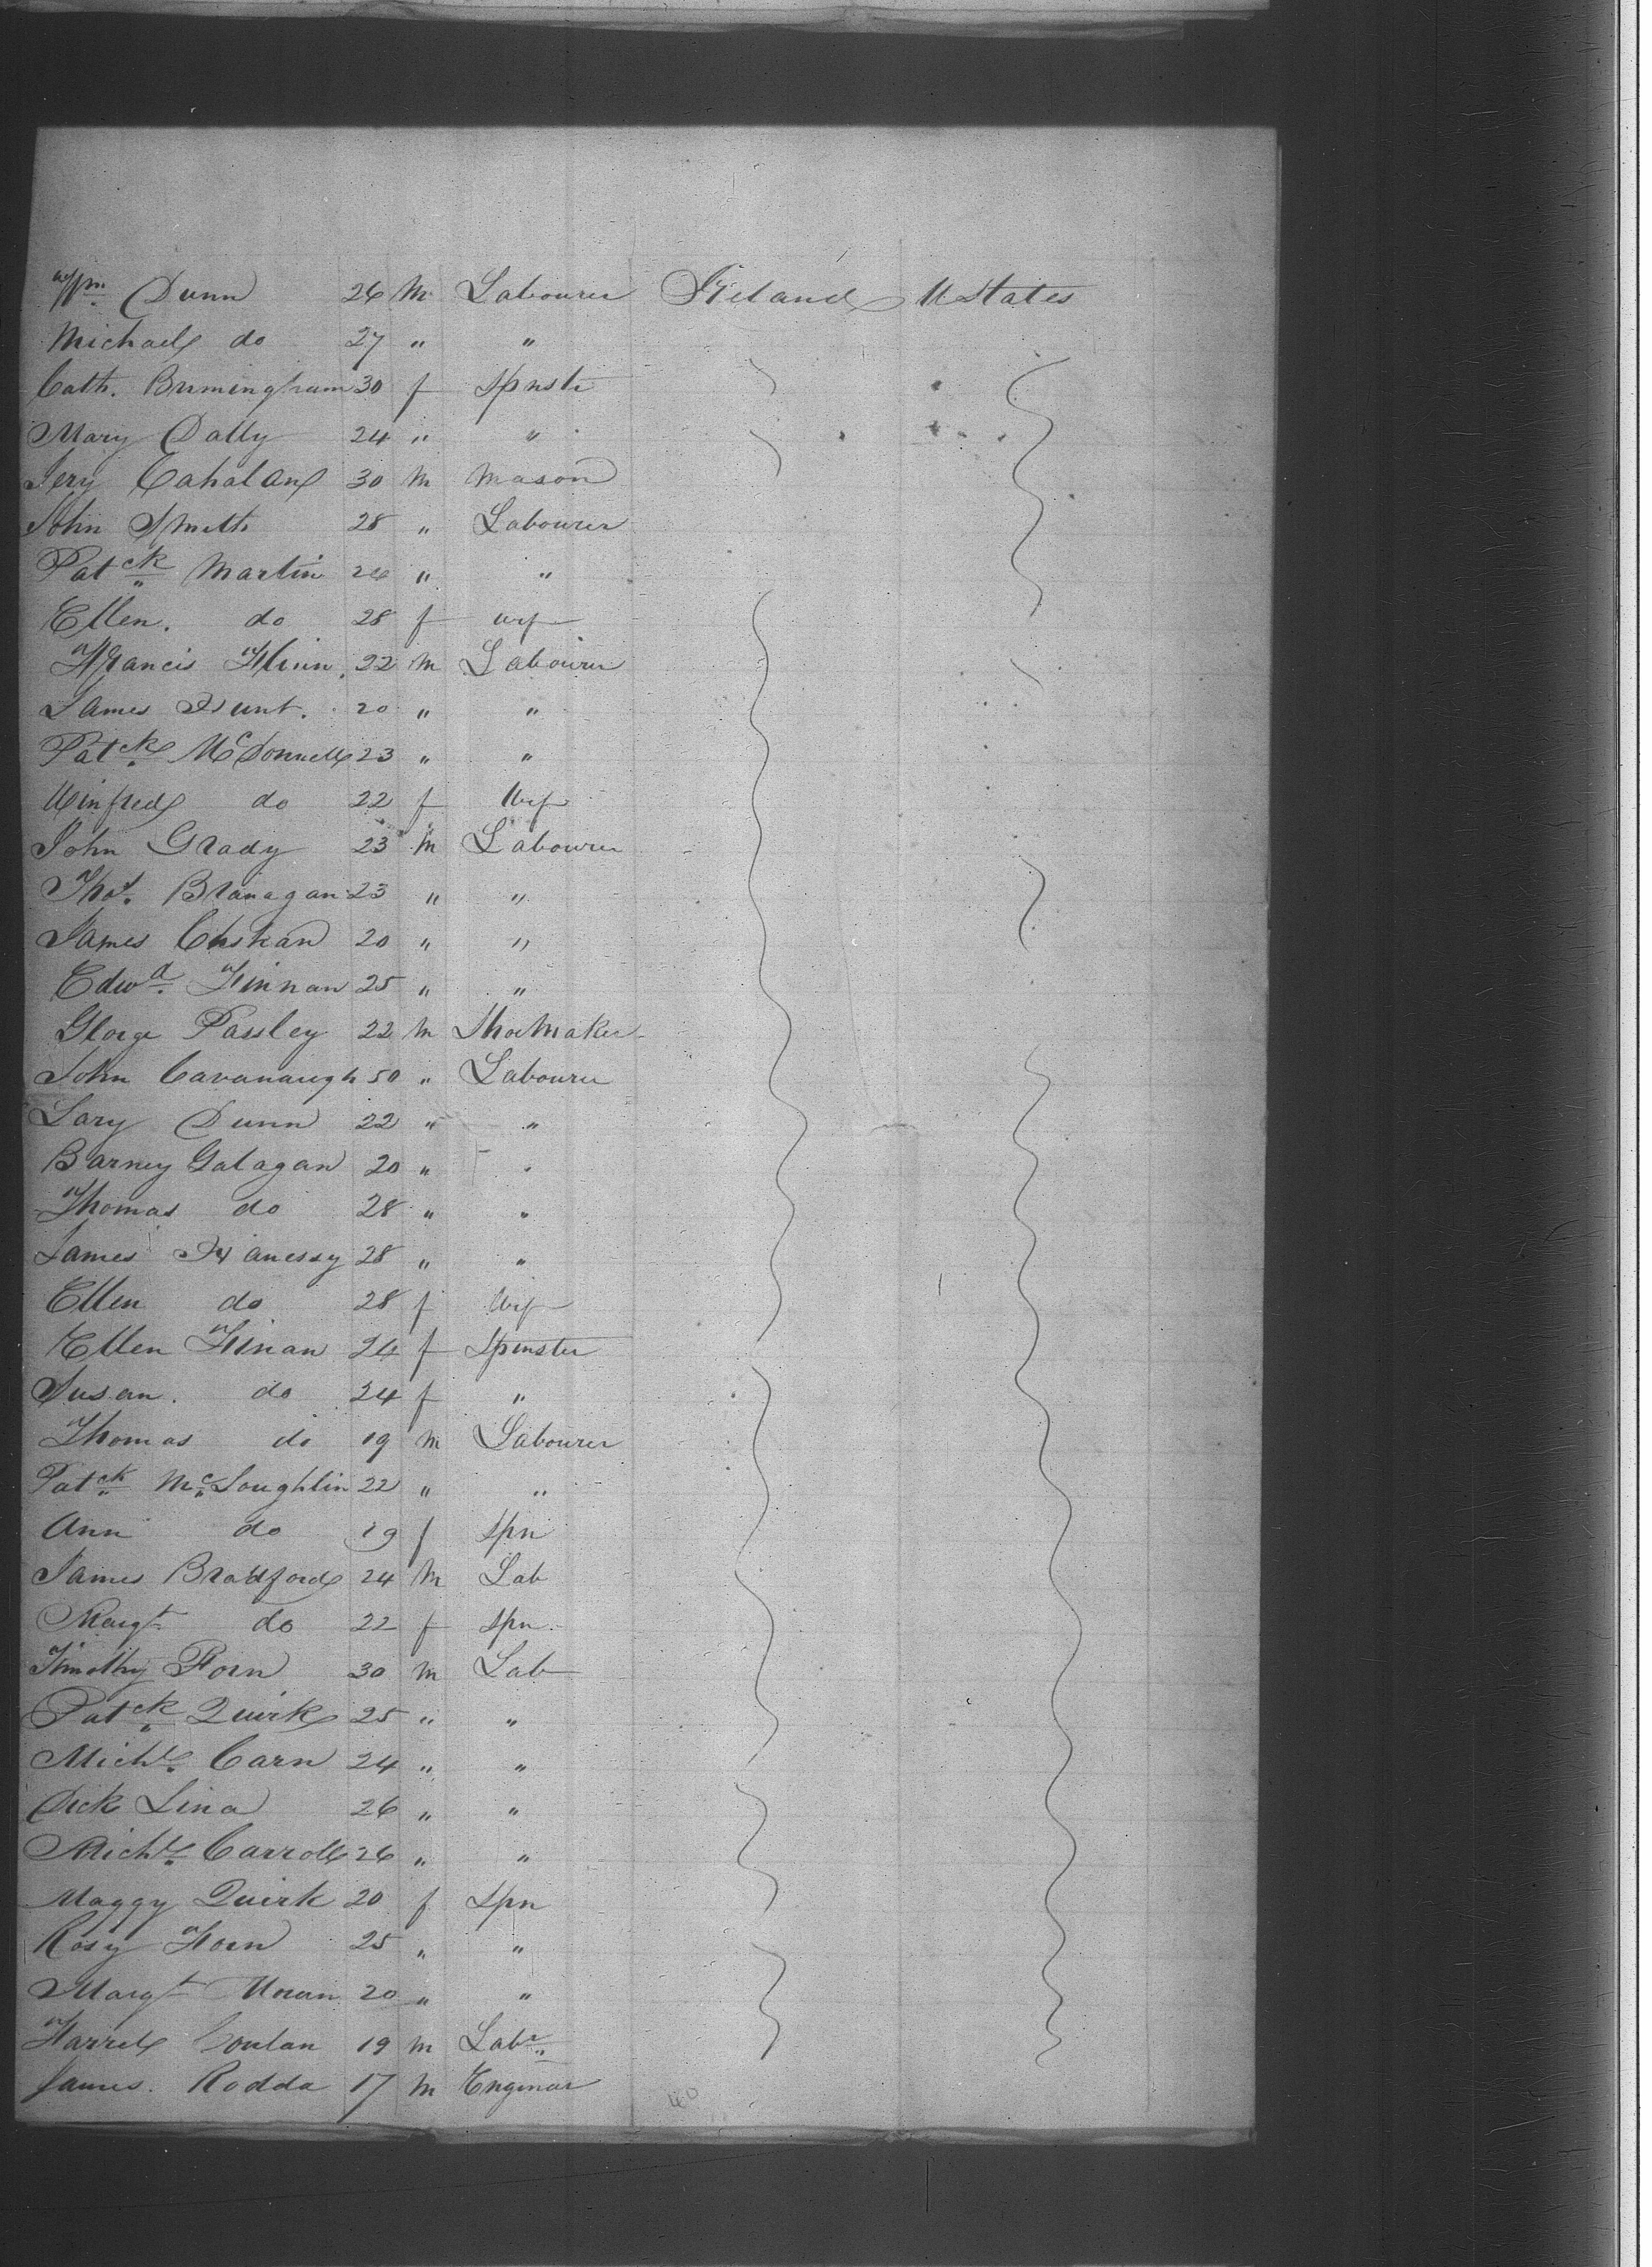 Wm. Dunn 26 M Labourer Ireland U States
Michael do 27 " "
Cath. Bumingham 30 f Spnstr
Mary Dally 24 " "
Jery Cahalan 30 M Mason
John Smith 28 " Labourer
Patck Martin 24 " "
Ellen. do 28 f wif
Francis Flinn. 22 M Labourer
James Hunt. 20 " "
Patck McDonnell 23 " "
Winfred do 22 f Wif
John Grady 23 M Labourer
Thos. Branagan 23 " "
James 20 " "
Edwd. Finnan 25 " "
George Passley 22 M ShoeMaker
John Cavanaugh 50 " Labourer
Lary Dunn 22 " "
Barney Galagan 20 " "
Thomas do 28 " "
James Hanessy 28 " "
Ellen do 28 f Wif
Ellen Finan 24 f Spinster
Susan. do 24 f "
Thomas do 19 M Labourer
Patck McLoughlin 22 " "
Ann do 19 f Spn
James Bradford 24 M Lab
Margt do 22 f Spn
Timothy Forn 30 M Lab
Patck Quirk 25 " "
Michl. Carn 24 " "
Dick Lina 26 " "
Michl. Carroll 26 " "
Maggy Quirk 20 f Spn
Rosy Horn 25 " "
Margt 20 " "
Farrel Conlan 19 M Labr
James. Rodda 17 M Enginar
40